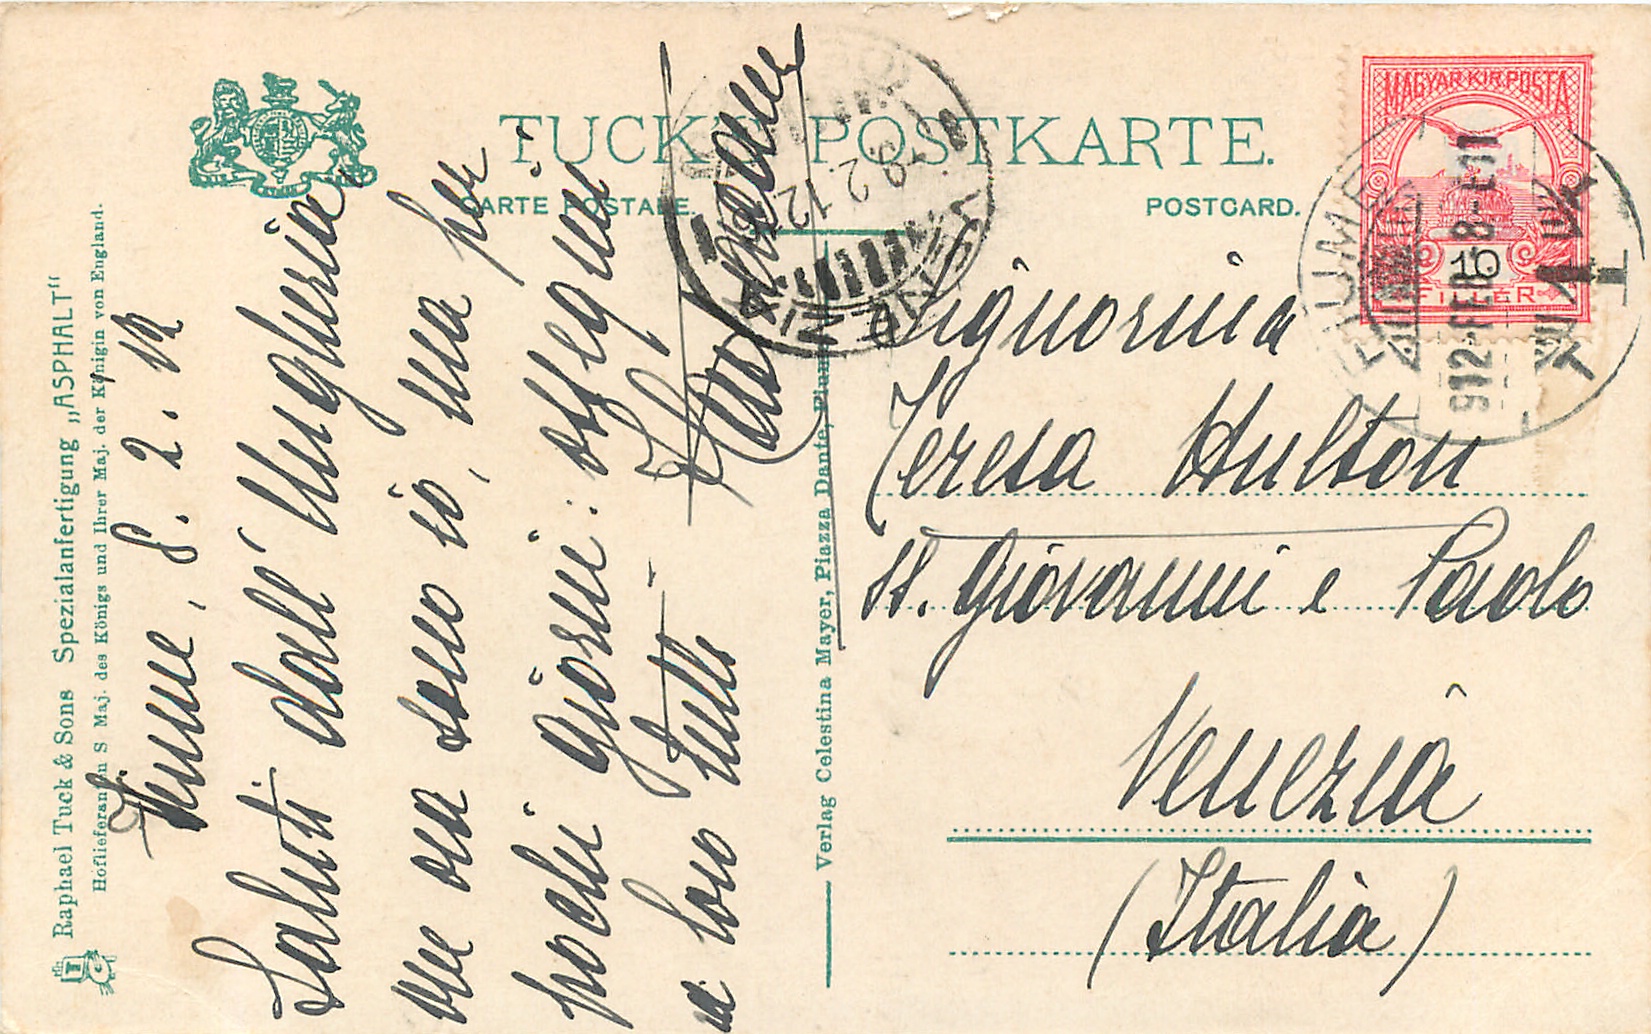 TUCK'S POSTKARTE.
CARTE POSTALE.
POSTCARD.
Raphael Tuck & Sons Spezialanfertigung „ASPHALT“
Hoflieferanten S Maj. des Königs und Ihrer Maj. der Königin von England.
Verlag Celestina Mayer, Piazza Dante, Fiume
Fiume, 8. 2. 12
Saluti dall' Ungheria
ove ora sono io, ma per
pochi giorni: ossequi
a loro tutti
Signorina
Teresa Hulton
SS. Giovanni e Paolo
Venezia
(Italia)
MAGYAR KIR. POSTA
10
FILLER
FIUME
912 FEB 8
9.2.12
VENEZIA